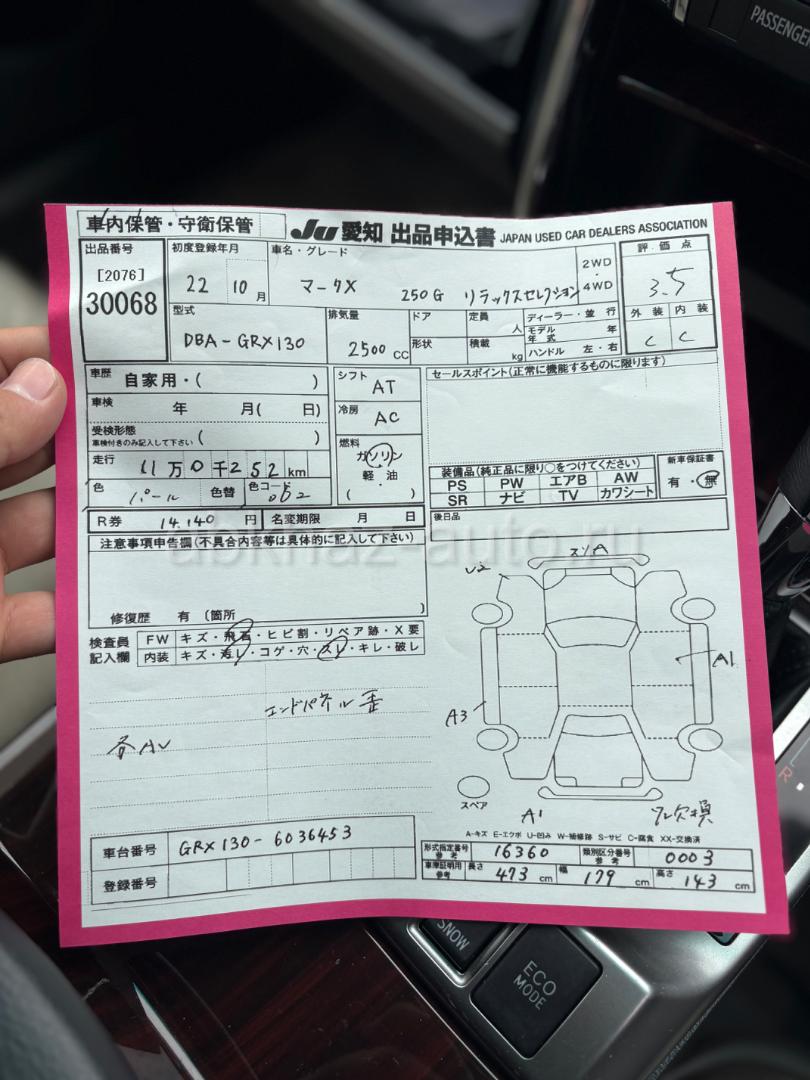 PASSENGER
車内保管・守衛保管
Ju 愛知 出品申込書 JAPAN USED CAR DEALERS ASSOCIATION
出品番号
[2076]
30068
初度登録年月
22 10 月
車名・グレード
マークX 250G リラックスセレクション
2WD
・
4WD
評価点
3.5
外装 内装
C C
型式
DBA-GRX130
排気量
2500 CC
ドア
形状
定員 人
積載 kg
ディーラー・並行
モデル年式 年
ハンドル 左・右
車歴 自家用・( )
車検 年 月( 日)
受検形態
車検付きのみ記入して下さい ( )
走行 11万0千252km
色 パール 色替 色コード 062
シフト AT
冷房 AC
燃料
ガソリン
軽・油
( ・ )
セールスポイント(正常に機能するものに限ります)
装備品(純正品に限り○をつけてください)
PS PW エアB AW
SR ナビ TV カワシート
新車保証書
有・無
後日品
R券 14.140 円 名変期限 月 日
注意事項申告調(不具合内容等は具体的に記入して下さい)
修復歴 有 (箇所 )
検査員
記入欄
FW キズ・飛石・ヒビ割・リペア跡・X要
内装 キズ・汚レ・コゲ・穴・スレ・キレ・破レ
エンドパネル歪
各AU
U2
スリA
A1
A3
A1
スペア
A-キズ E-エクボ U-凹み W-補修跡 S-サビ C-腐食 XX-交換済
車台番号 GRX130-6036453
登録番号
形式指定番号
参考
16360
類別区分番号
参考
0003
車庫証明用
参考
長さ 473 cm 幅 179 cm 高さ 143 cm
abkhaz-auto.ru
R
SNOW
ECO
MODE